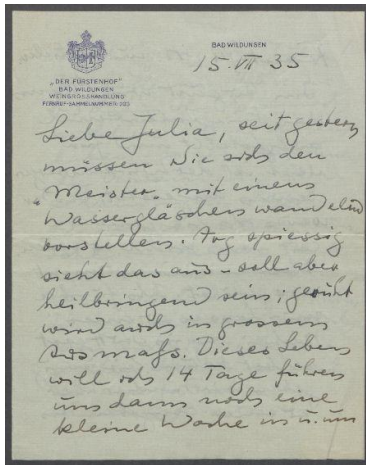 "DER FÜRSTENHOF"
BAD WILDUNGEN
WEINGROSSHANDLUNG
FERNRUF-SAMMELNUMMER: 203
BAD WILDUNGEN
15. VII 35
Liebe Julia, seit gestern
müssen Sie sich den
"Meister" mit einem
Wassergläschen wandelnd
vorstellen. Arg spiessig
sieht das aus – soll aber
heilbringend sein; geruht
wird auch in grossem
Ausmass. Dieses Leben
will ich 14 Tage führen
um dann noch eine
kleine Woche in u. um